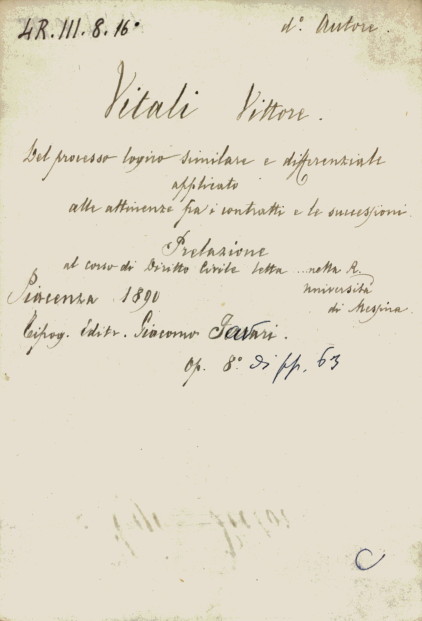 4R. III. 8. 16°
d°. Autore.
Vitali Vittore.
Del processo logico similare e differenziale
applicato
alle attinenze fra i contratti e le successioni.
Prelazione
al corso di Diritto Civile letta .. nella R.
Università
di Messina.
Piacenza 1890
Tipog. Editr. Giacomo Tarari.
Op. 8° di pp. 63
C